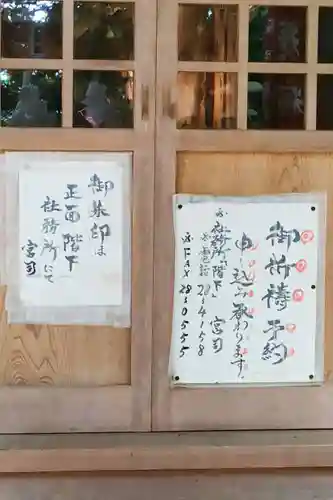 御朱印は
正面階下
社務所にて
宮司
御祈祷予約
申し込み承わります
宮司
☆社務所「階下」
☆電話 28-4158
☆FAX 28-0555